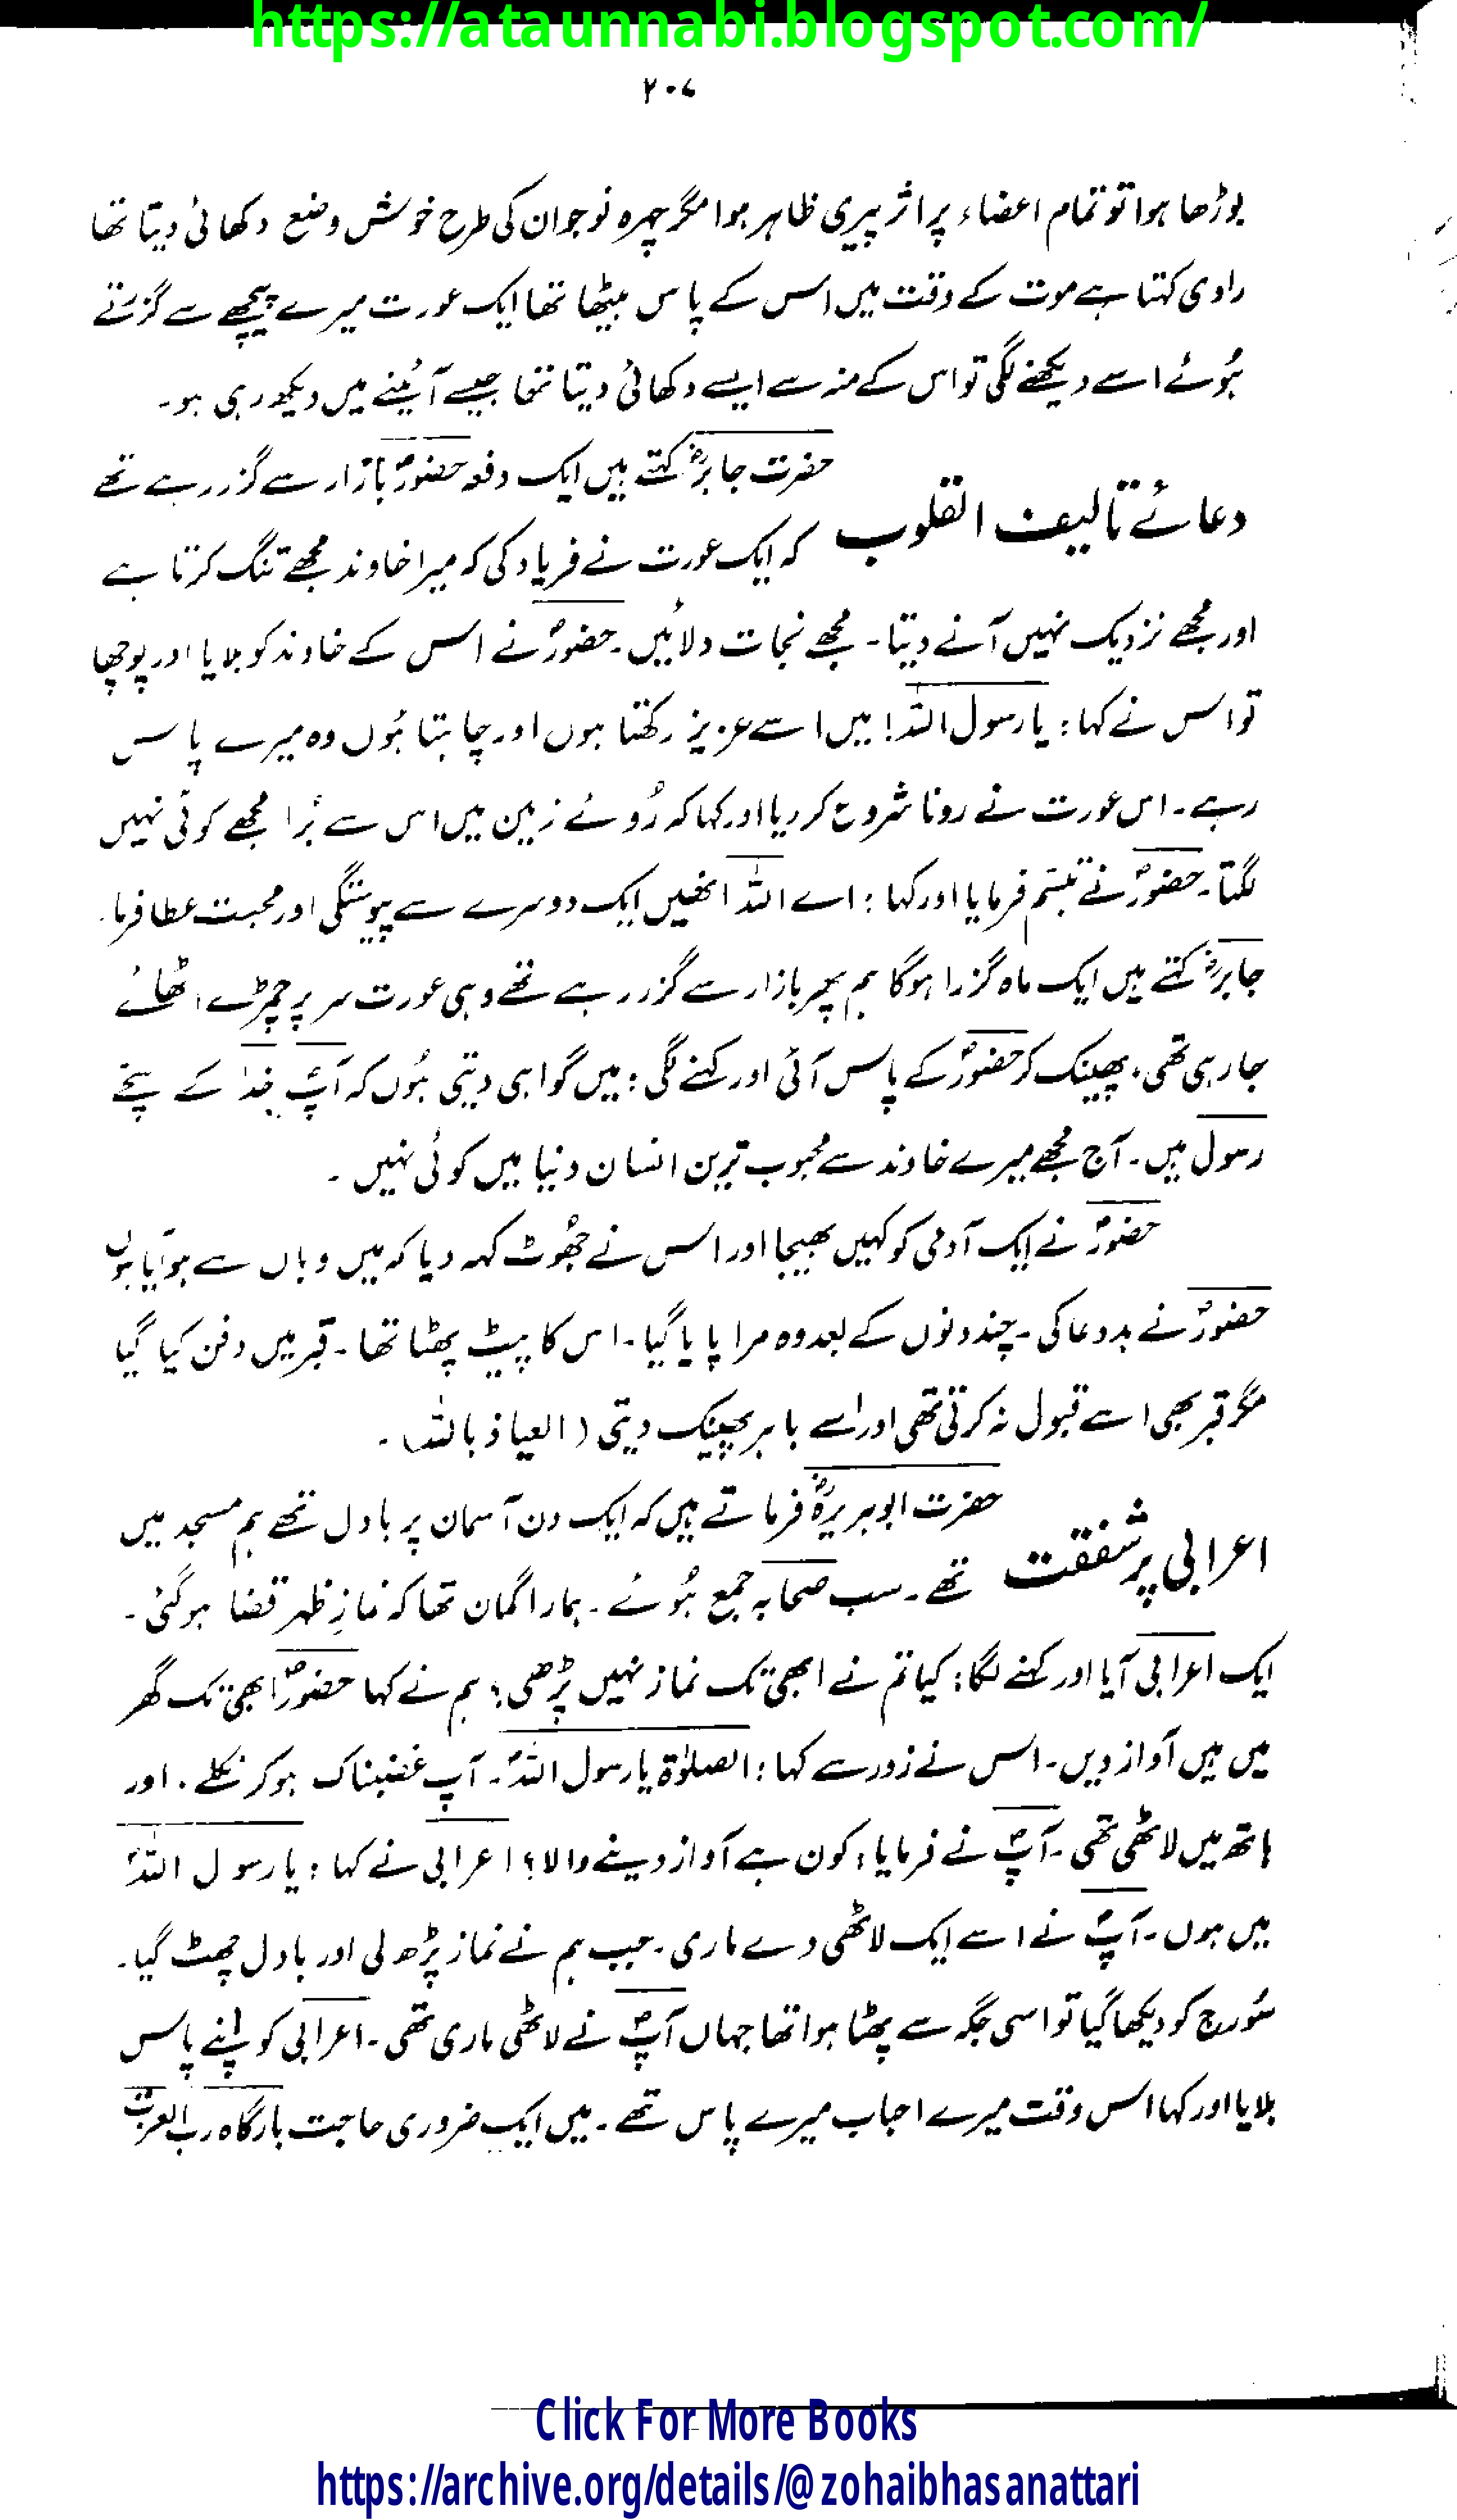 https://ataunnabi.blogspot.com/
۲۰۷
بوڑھا ہوا تو تمام اعضاء پر اثر پیری ظاہر ہوا مگر چہرہ نوجوان کی طرح خوش وضع دکھائی دیتا تھا
راوی کہتا ہے موت کے وقت میں اس کے پاس بیٹھا تھا ایک عورت میرے پیچھے سے گزرتے
ہُوئے اسے دیکھنے لگی تو اس کے منہ سے ایسے دکھائی دیتا تھا جیسے آئینے میں دیکھ رہی ہو۔
دعائے تالیف القلوب
حضرت جابرؓ کہتے ہیں ایک دفعہ حضورؐ بازار سے گزر رہے تھے
کہ ایک عورت نے فریاد کی کہ میرا خاوند مجھے تنگ کرتا ہے
اور مجھے نزدیک نہیں آنے دیتا۔ مجھے نجات دلائیں۔ حضورؐ نے اس کے خاوند کو بلایا اور پوچھا
تو اس نے کہا : یا رسول اللہ! میں اسے عزیز رکھتا ہوں اور چاہتا ہُوں وہ میرے پاس
رہے۔ اس عورت نے رونا شروع کر دیا اور کہا کہ رُوئے زمین میں اس سے بُرا مجھے کوئی نہیں
لگتا۔ حضورؐ نے تبسّم فرمایا اور کہا : اے اللہ انھیں ایک دوسرے سے پیوستگی اور محبت عطا فرما۔
جابرؓ کہتے ہیں ایک ماہ گزرا ہوگا ہم پھر بازار سے گزر رہے تھے وہی عورت سر پر چمڑے اٹھائے
جا رہی تھی۔ پھینک کر حضورؐ کے پاس آئی اور کہنے لگی : میں گواہی دیتی ہُوں کہ آپؐ خدا کے سچے
رسول ہیں۔ آج مجھے میرے خاوند سے محبوب ترین انسان دنیا میں کوئی نہیں۔
حضورؐ نے ایک آدمی کو کہیں بھیجا اور اس نے جھُوٹ کہہ دیا کہ میں وہاں سے ہو آیا ہوں
حضورؐ نے بددعا کی۔ چند دنوں کے بعد وہ مرا پایا گیا۔ اس کا پیٹ پھٹا تھا۔ قبر میں دفن کیا گیا
مگر قبر بھی اسے قبول نہ کرتی تھی اور اسے باہر پھینک دیتی (العیاذ باللہ)۔
اعرابی پر شفقت
حضرت ابوہریرہؓ فرماتے ہیں کہ ایک دن آسمان پر بادل تھے ہم مسجد میں
تھے۔ سب صحابہ جمع ہُوئے۔ ہمارا گمان تھا کہ نمازِ ظہر قضا ہوگئی۔
ایک اعرابی آیا اور کہنے لگا : کیا تم نے ابھی تک نماز نہیں پڑھی؟ ہم نے کہا حضورؐ ابھی تک گھر
میں ہیں آواز دیں۔ اس نے زور سے کہا : الصلوٰۃ یا رسول اللہؐ۔ آپ غضبناک ہوکر نکلے۔ اور
ہاتھ میں لاٹھی تھی۔ آپؐ نے فرمایا : کون ہے آواز دینے والا؟ اعرابی نے کہا : یا رسول اللہؐ
میں ہوں۔ آپؐ نے اسے ایک لاٹھی دے ماری۔ جب ہم نے نماز پڑھ لی اور بادل چھٹ گیا۔
سُورج کو دیکھا گیا تو اسی جگہ سے پھٹا ہوا تھا جہاں آپؐ نے لاٹھی ماری تھی۔ اعرابی کو اپنے پاس
بلایا اور کہا اس وقت میرے احباب میرے پاس تھے۔ میں ایک ضروری حاجت بارگاہ رب العزت
Click For More Books
https://archive.org/details/@zohaibhasanattari